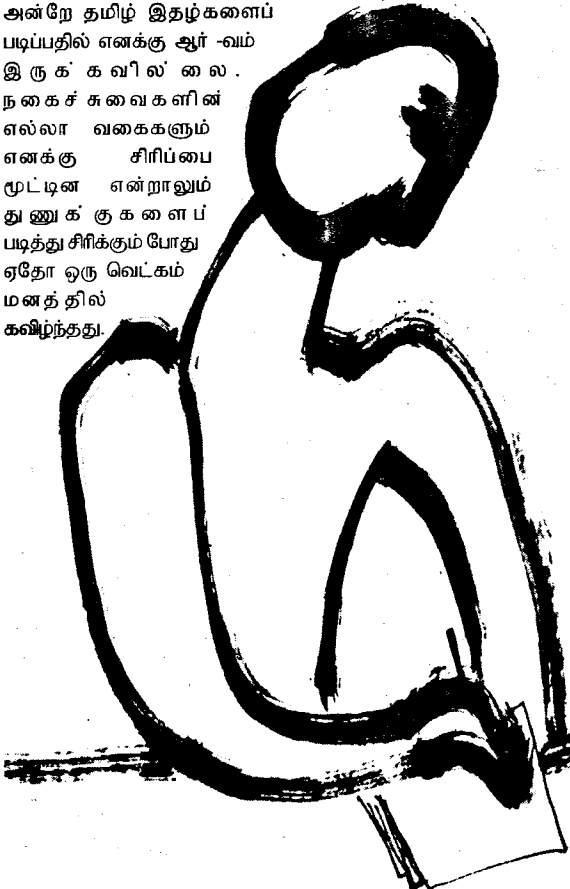 அன்றே தமிழ் இதழ்களைப்
படிப்பதில் எனக்கு ஆர் -வம்
இருக்கவில்லை.
நகைச்சுவைகளின்
எல்லா வகைகளும்
எனக்கு சிரிப்பை
மூட்டின என்றாலும்
துணுக்குகளைப்
படித்து சிரிக்கும் போது
ஏதோ ஒரு வெட்கம்
மனத்தில்
கவிழ்ந்தது.